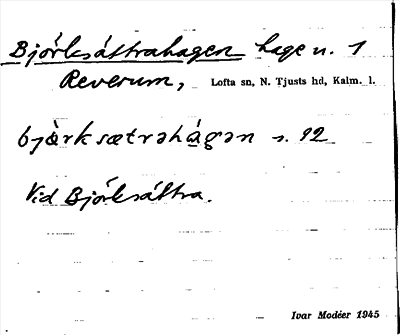 Björksättrahagen hage u. 1
Reverum, Lofta sn, N. Tjusts hd, Kalm. l.
bjàrksætrəhágən s. 92
Vid Björksättra.
Ivar Modéer 1945